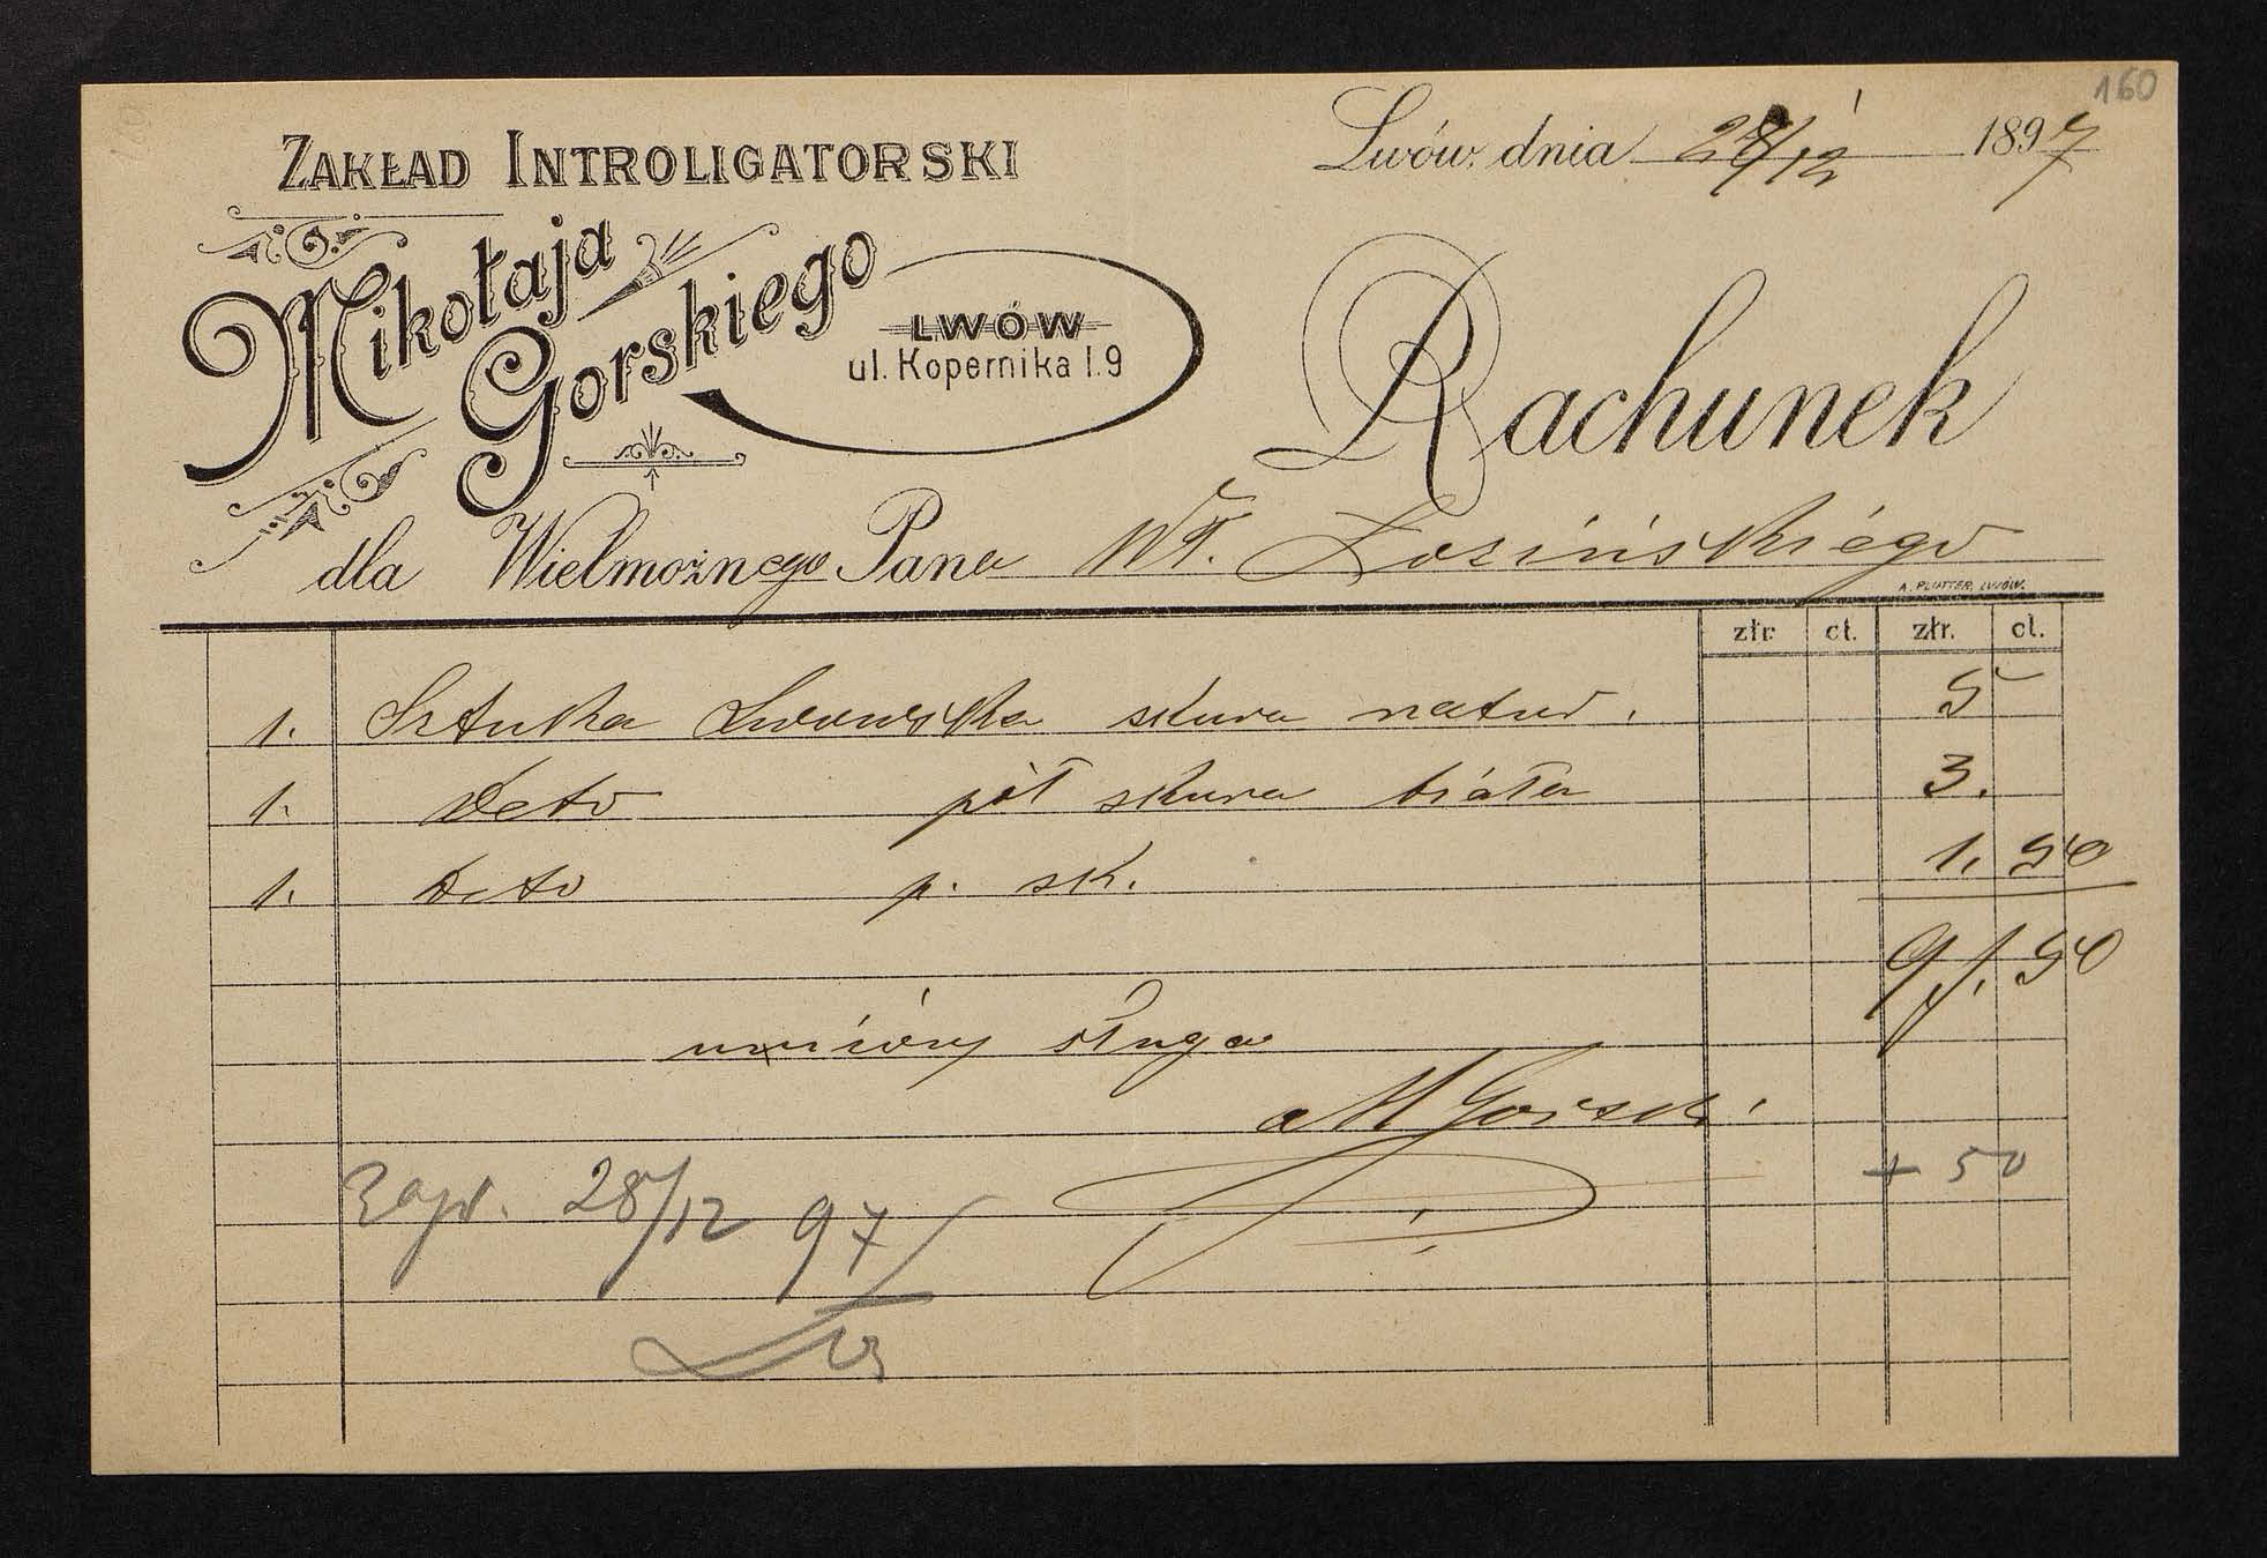 160
Lwów, dnia 28/12 1897
ZAKŁAD INTROLIGATORSKI
Mikołaja
Gorskiego
LWÓW
ul. Kopernika l. 9
Rachunek
dla Wielmożnego Pana Wł. Łozińskiego
A. PLUTTER, LWÓW.
złr. ct. złr. ct.
1. Sztuka Lwowska skura natur. 5
1. Deto pół skura biała 3.
1. Deto p. sk. 1. 50
9 f. 50
uniżony sługa
M Gorski
+ 50
Zapł. 28/12 97